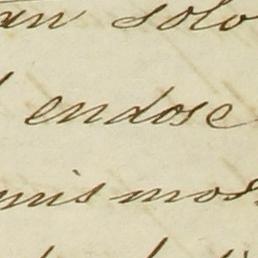 an solo
endose
mismos